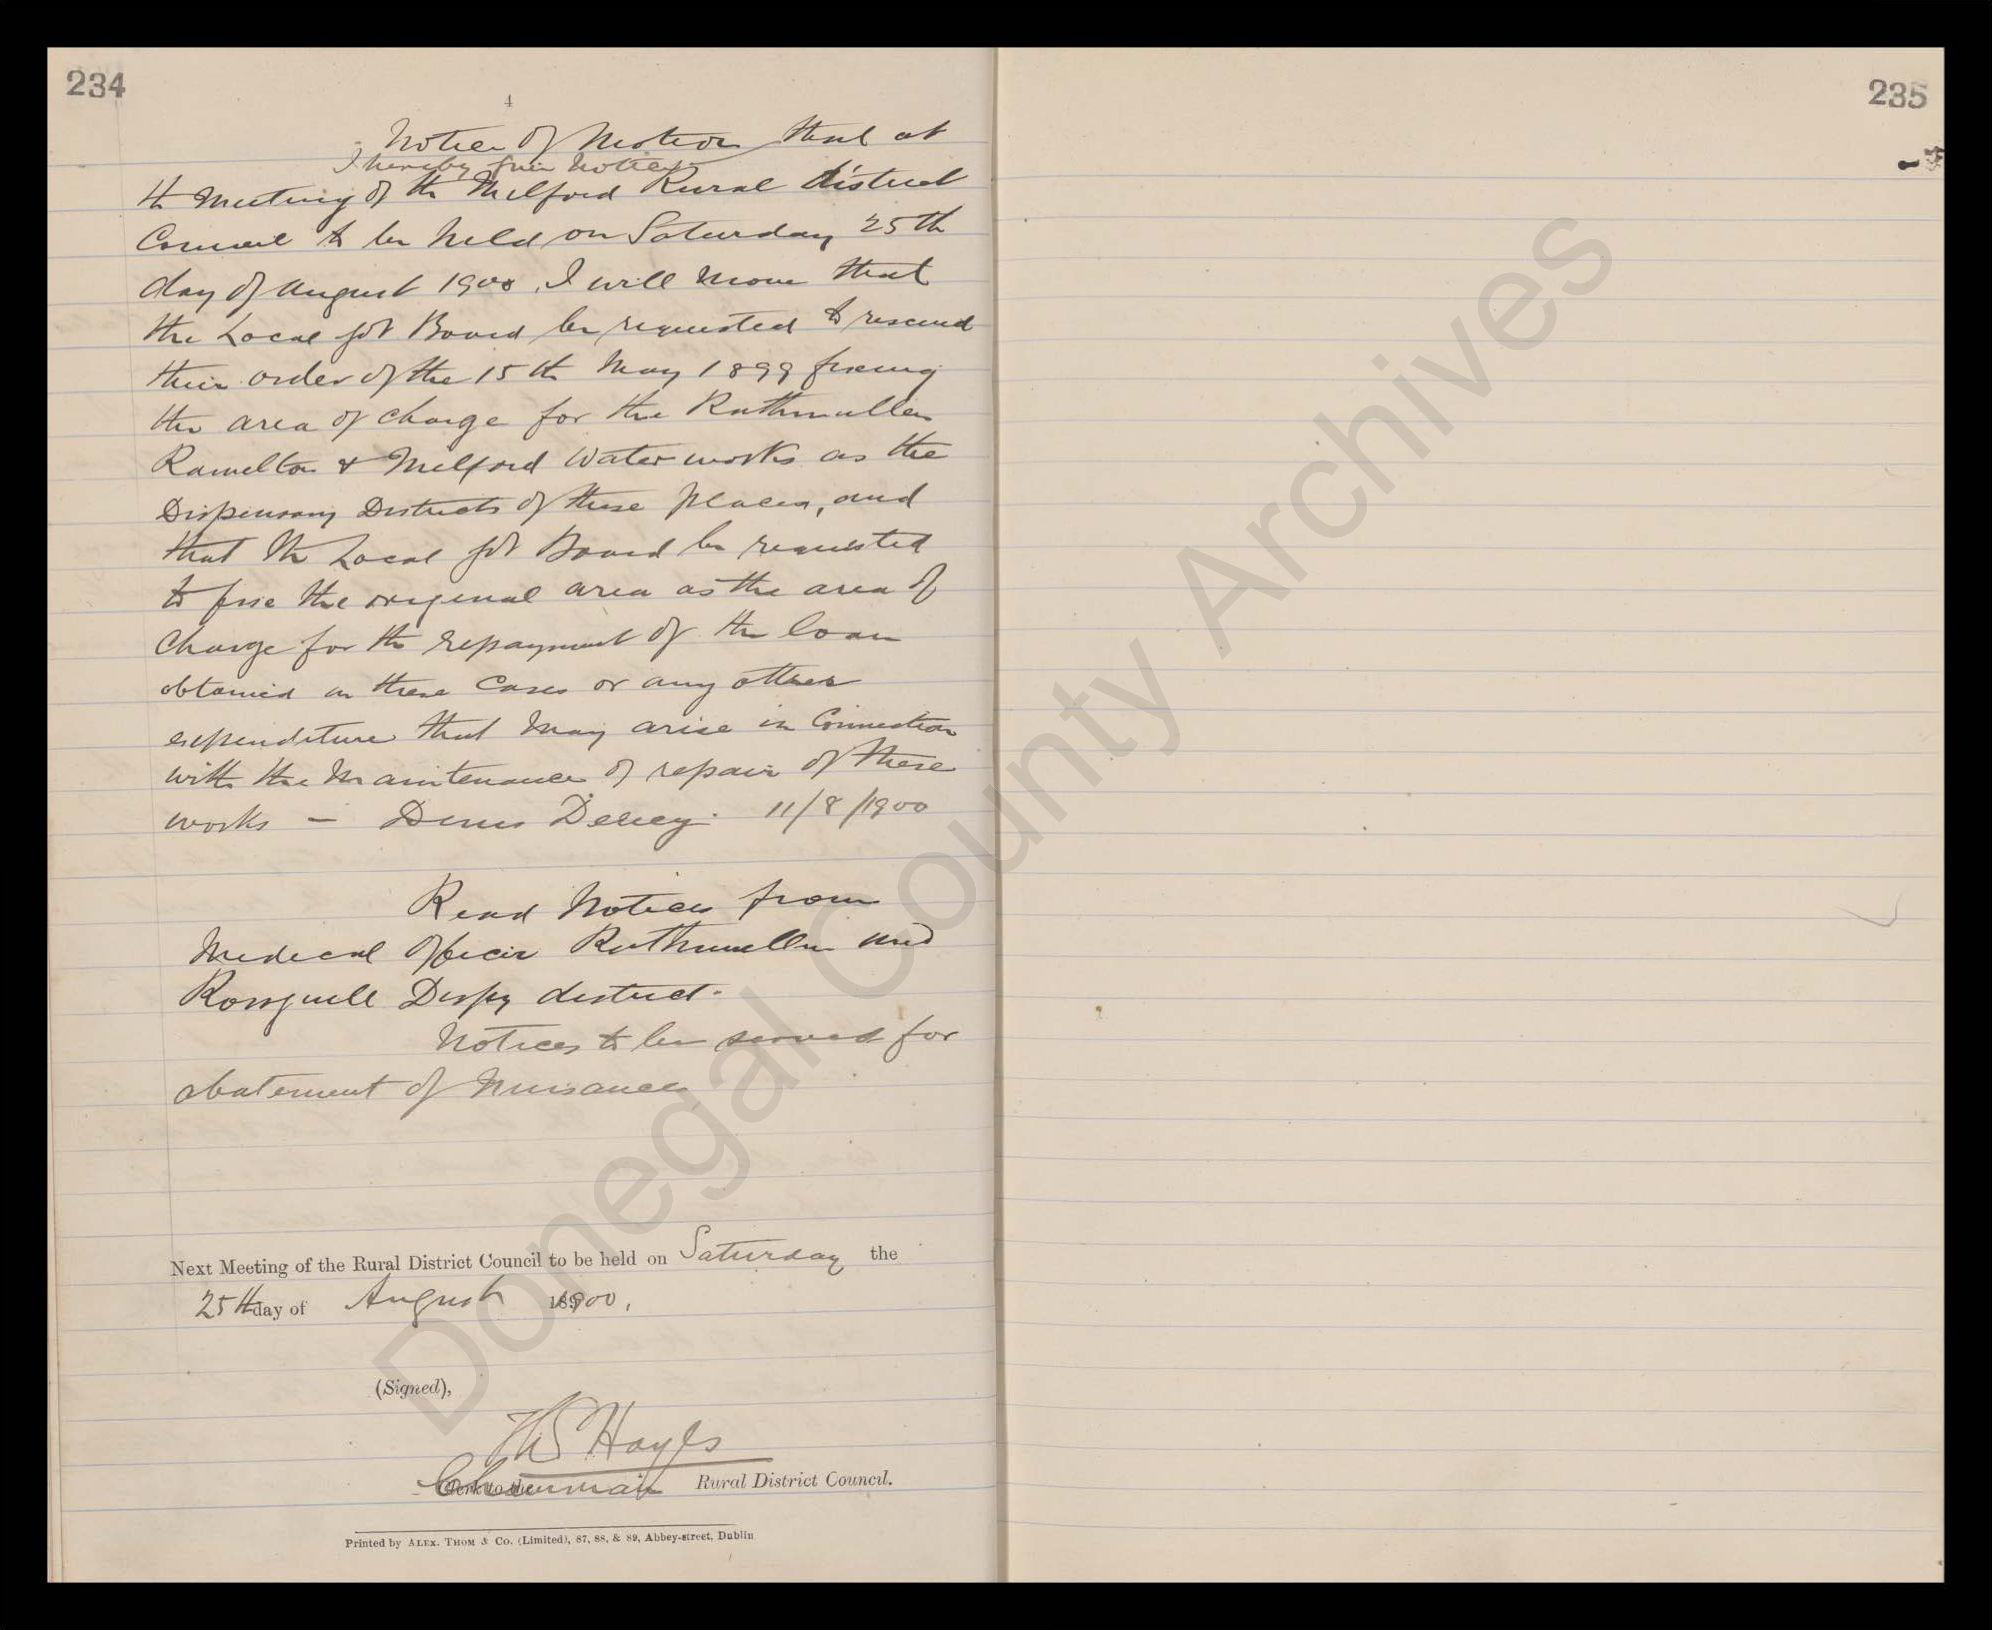 234
4
Notice of Motion that at
I hereby give notice
the Meeting of the Milford Rural district
Council to be held on Saturday 25th
day of August 1900. I will move that
the Local Gvt Board be requested to rescind
their order of the 15th May 1899 fixing
the area of charge for the Rathmullen
Ramelton & Milford Waterworks as the
Dispensary Districts of these places, and
that the Local Gvt Board be requested
to fix the original area as the area of
charge for the repayment of the loan
obtained in these cases or any other
expenditure that may arise in Connection
with the Maintenance of repair of these
works — Denis 11/8/1900
Read Notices from
Medical Officer Rathmullen and
Rosguill Dispy district.
Notices to be served for
abatement of Nuisances
Next Meeting of the Rural District Council to be held on Saturday the
25th day of August 1900.
(Signed),
Hayes
Chairman Rural District Council.
Printed by Alex. Thom & Co. (Limited), 87, 88, & 89, Abbey-street, Dublin
235
Donegal County Archives